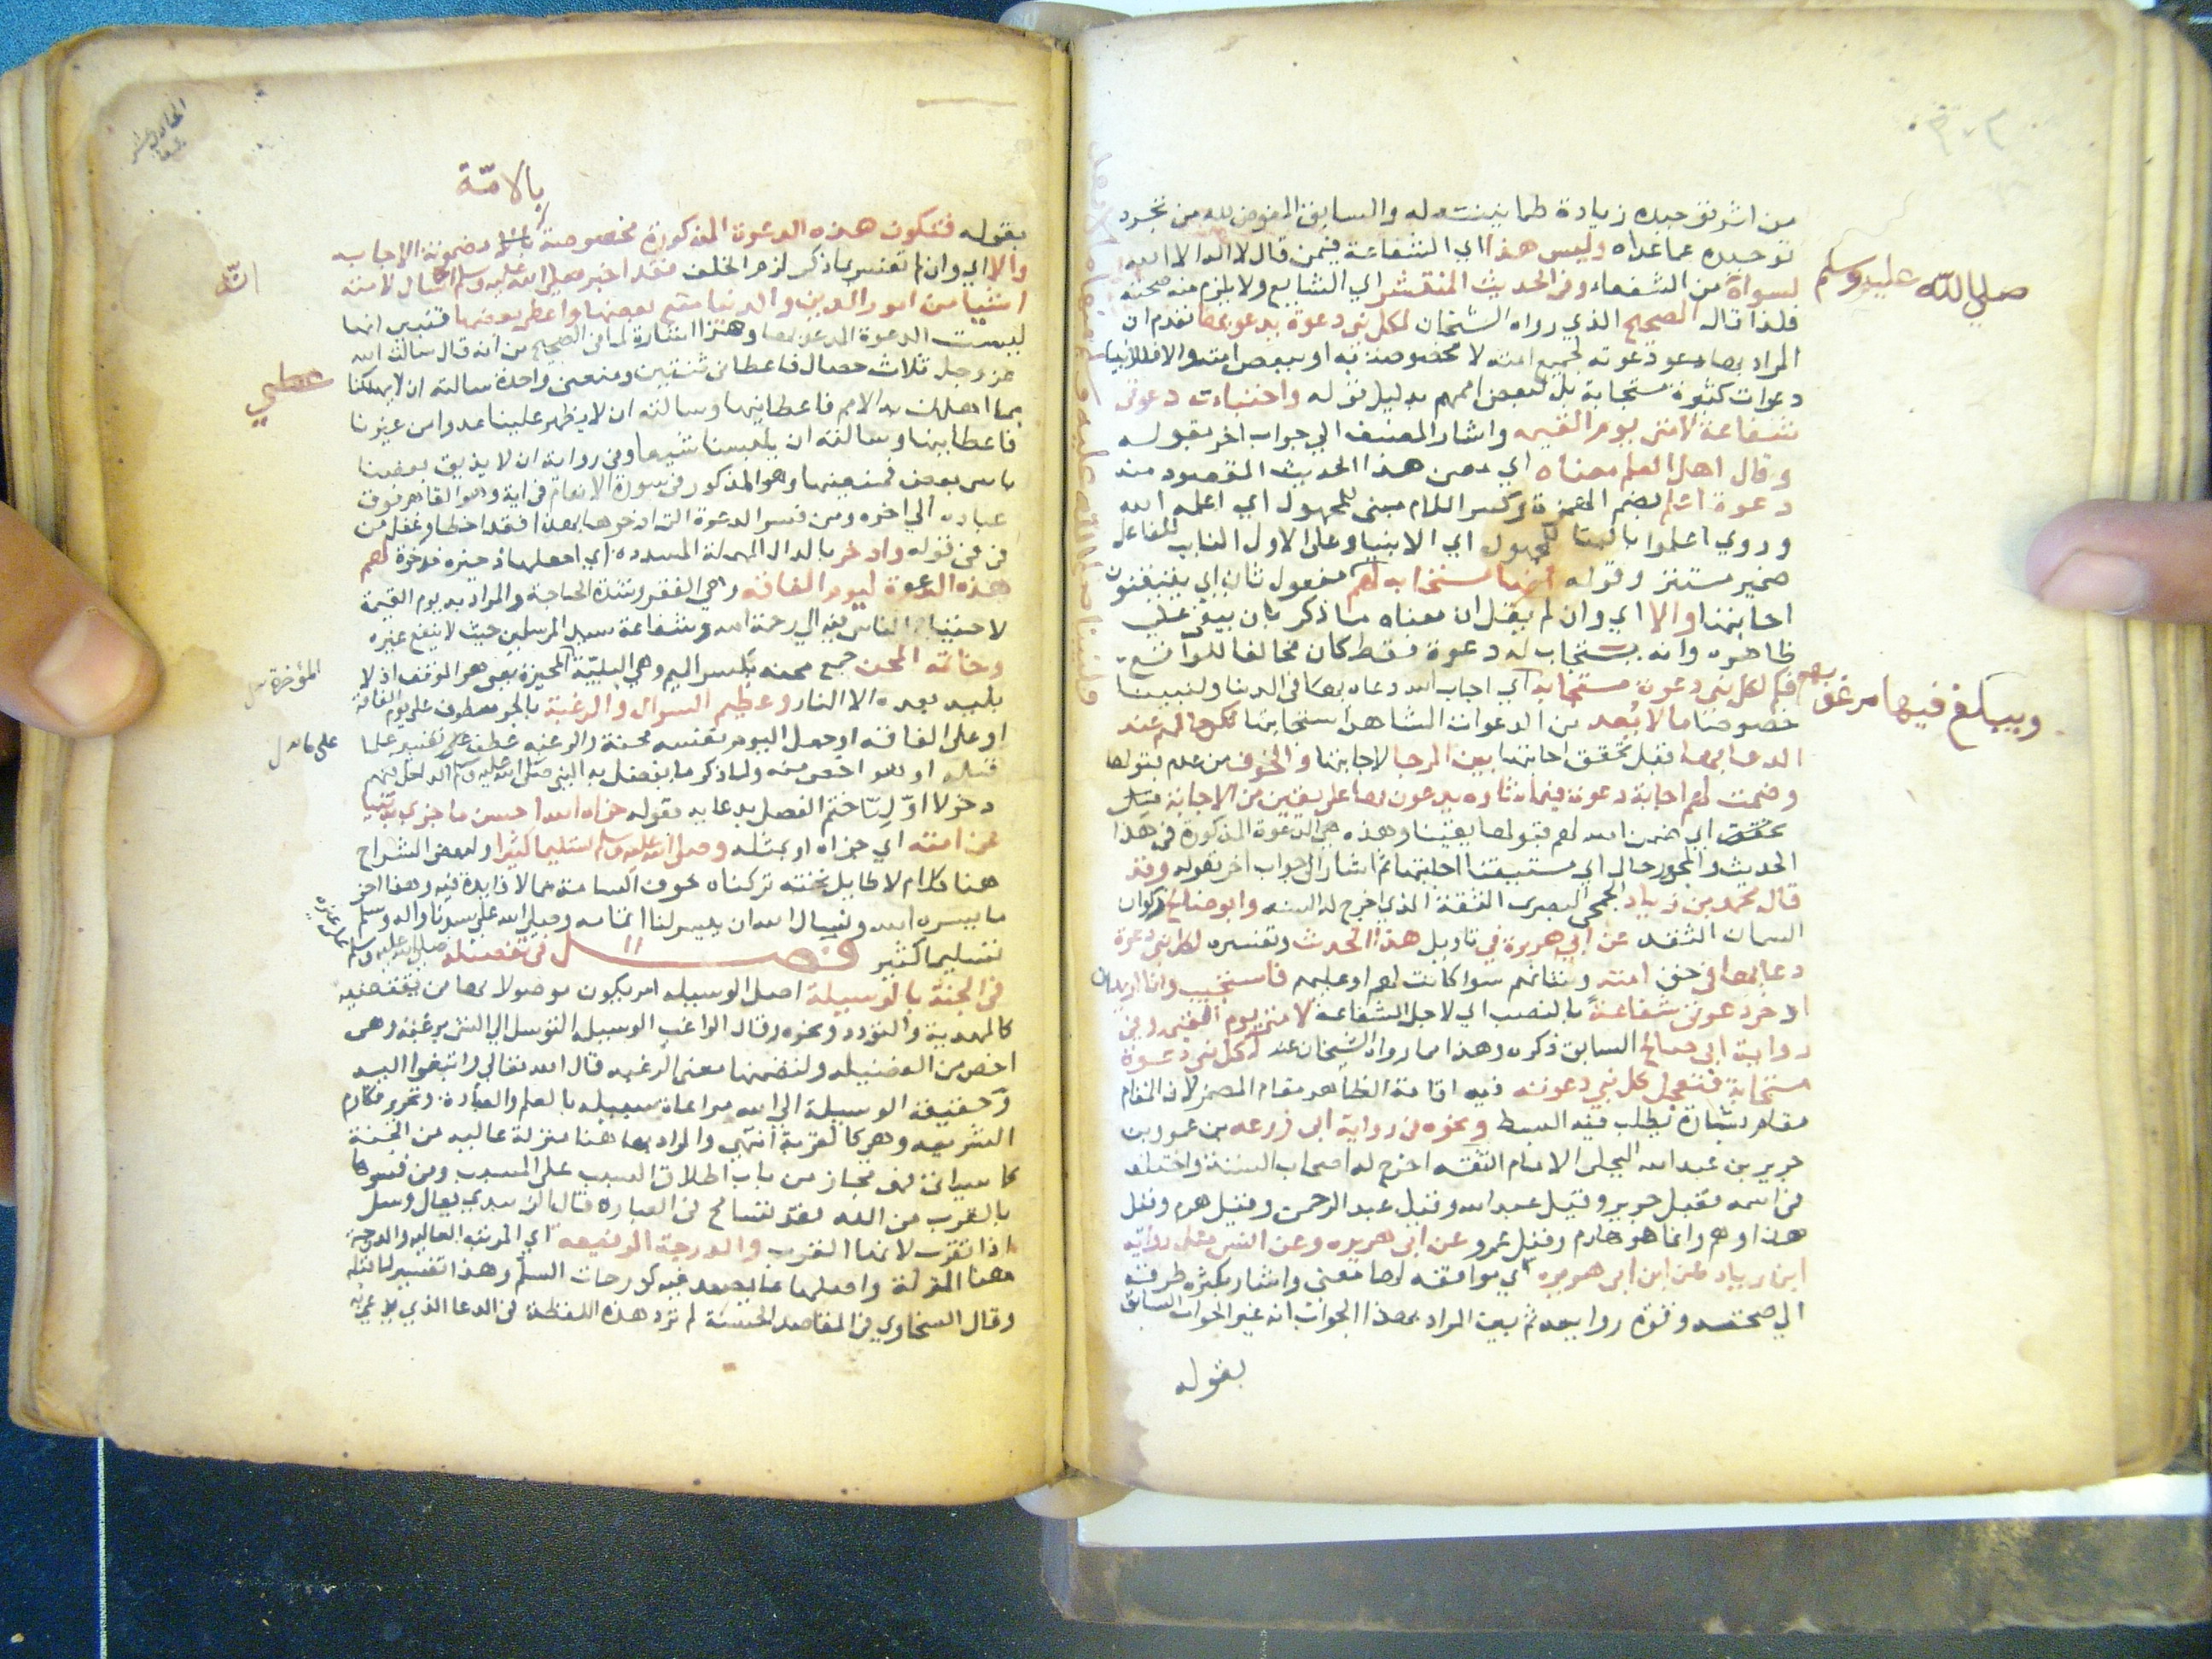 من اثر توحيده زيادة طمانينت له والسابق المفوض لله من تجرد
توحيده عما عداه وليس هذا اي الشفاعة فيمن قال لا اله الا الله
لسواه من الشفعاء وفي الحديث المنتشر اي الشايع ولا يلزم منه صحته
فلذا قال الصحيح الذي رواه الشيخان لكل نبي دعوة يدعو بها تقدم ان
المراد بها دعوته لجميع امته لا مخصوصة به او ببعض امته والا فللانبيا
دعوات كثيرة مستجابة بل لبعض اممهم بدليل قوله واختبات دعوتي
شفاعة لامتي يوم القيمه واشار المصنف الي جواب اخر بقوله
وقال اهل العلم معناه اي معنى هذا الحديث المقصود منه
دعوة اعلم بضم الهمزة وكسر اللام مبني للمجهول اي اعلمه الله
وروي اعلموا بالبنا للمجهول اي الانبيا وعلى الاول النايب للفاعل
ضمير مستتر وقوله انها مستجابه لهم مفعول ثان اي يتيقنون
اجابتها والا اي وان لم يقل ان معناه ما ذكر بان بيقى علي
ظاهره وانه يستجاب له دعوة فقط كان مخالفا للواقع
فكم لكل نبي دعوة مستجابه اي اجاب الله دعاه بها في الدنيا ولنبينا
خصوصا ما لا يعد من الدعوات الشاهد استجابتها لكن حالهم عند
الدعا بها قبل تحقق اجابتها بين الرجا لاجابتها والخوف من عدم قبولها
وضمنت لهم اجابة دعوة فيما شاؤه يدعون بها على يقين من الاجابة
اي ضمن الله لهم قبولها يقينا وهذه هي الدعوة المذكورة في هذا
الحديث والمجرور حال اي مستيقنا اجابتها ثم اشار الى جواب اخر بقوله وقد
قال محمد بن زياد الجمحي البصري الثقة الذي اخرج له السته وابو صالح ذكوان
السمان الثقه عن ابي هريرة في تاويل هذا الحديث وتفسيره لكل نبي دعوة
دعا بها في حق امته وشانهم سوا كانت لهم او عليهم فاستجيب وانا اريد ان
اوخر دعوتي شفاعة بالنصب اي لاجل الشفاعة لامتي يوم القيمه وفي
رواية ابي صالح السابق ذكره وهذا مما رواه الشيخان عنه لكل نبي دعوة
مستجابة فتعجل كل نبي دعوته فيه اقامة الظاهر مقام المضمر لان المقام
مقام بشارة يطلب فيه البسط ونحوه في رواية ابي زرعه بن عمرو بن
جرير بن عبد الله البجلي الامام الثقه اخرج له اصحاب السنة واختلف
في اسمه فقيل جرير وقيل عبد الله وقيل عبد الرحمن وقيل هرم وقيل
هذا وهم وانما هو هارم وقيل عمرو عن ابي هريره وعن انس مثل رواية
ابن زياد عن ابي هريره اي موافقه لها معنى واشار بكثرة طرقه
الي صحته وقوة روايته ثم بين المراد بهذا الجواب انه غير الجواب السابق
بقوله
صلي الله عليه وسلم
ويبلغ فيها مرغوبهم
بالامّة
بقوله فتكون هذه الدعوة المذكورة مخصوصة مضمونة الاجابه
والا اي وان لم تفسر بما ذكر لزم الخلف فقد اخبر صلى الله عليه وسلم انه سال لامته
اشيا من امور الدين والدنيا منع بعضها واعطي بعضها فتبين انها
ليست الدعوة المدعو بها وهذا اشارة لما في الصحيح من انه قال سالت الله
عز وجل ثلاث خصال فاعطاني ثنتين ومنعني واحدة سالته ان لا يهلكنا
بما اهلك به الامم فاعطانيها وسالته ان لا يظهر علينا عدوا من غيرنا
فاعطانيها وسالته ان لا يلبسنا شيعا وفي رواية ان لا يذيق بعضنا
باس بعض فمنعنيها وهو المذكور في سورة الانعام في اية وهو القاهر فوق
عباده الي اخره ومن فسر الدعوة التي ادخرها بهذا فقد اخطا وغفل عن
قوله وادخر بالدال المهملة المشدده اي اجعلها ذخيرة مدخرة لهم
هذه الدعوة ليوم الفاقه وهي الفقر وشدة الحاجة والمراد به يوم القيمة
لاحتياج الناس فيه الي رحمة الله وشفاعة سيد المرسلين حيث لا ينفع غيره
وخاتمه المحن جمع محنه بكسر الميم وهي البليّة المحيرة يعني هو الموقف اذ لا
بليه بعده الا النار وعظيم السوال والرغبة بالجر معطوف على يوم الفاقة
او على الفاقه او جعل اليوم نفسه محنة والرغبه عطف تفسير على ما
قبله او هو اخص منه ولما ذكر ما يفضل به النبي صلى الله عليه وسلم الداخل فيهم
دخولا اوّليّا ختم الفصل بدعا به بقوله جزاه الله احسن ما جزي نبيا
عن امته اي جزاه او مثله وصلى الله عليه وسلم تسليما كثيرا ولبعض الشراح
هنا كلام لا طايل تحته تركناه خوف السامة مما لا فايدة فيه وهذا اخر
ما يسره الله ونسال الله ان ييسر لنا اتمامه وصلى الله على سيدنا واله وسلم
تسليما كثير فصـــل في تفضيله صلى الله عليه وسلم
في الجنة بالوسيلة اصل الوسيله امر يكون موصولا بها من
كالهدية والتودد ونحوه وقال الراغب الوسيله التوسل الي الشي برغبة وهي
اخص من الفضيله ولتضمنها معنى الرغبه قال الله تعالي وابتغوا اليه
وحقيقة الوسيلة الي الله مراعاة سبيله بالعلم والعبادة وتحري مكارم
الشريعه وهي كالقربة انتهي والمراد بها هنا منزلة عاليه من الجنة
كما سياتي فهو مجاز من باب اطلاق السبب على المسبب ومن فسرها
بالقرب من الله فقد تسامح في العباره قال ابن سيدي يقال وسل
اذا تقرب لانها القرب والدرجة الرفيعه اي المرتبه العاليه والدرجة
هنا المنزلة واصلها ما يصعد فيه كدرجات السلم وهذا تفسير لما قبله
وقال السخاوي في المقاصد الحسنة لم ترد هذه اللفظة في الدعا الذي
الله
المؤخرة
الحادي عشر